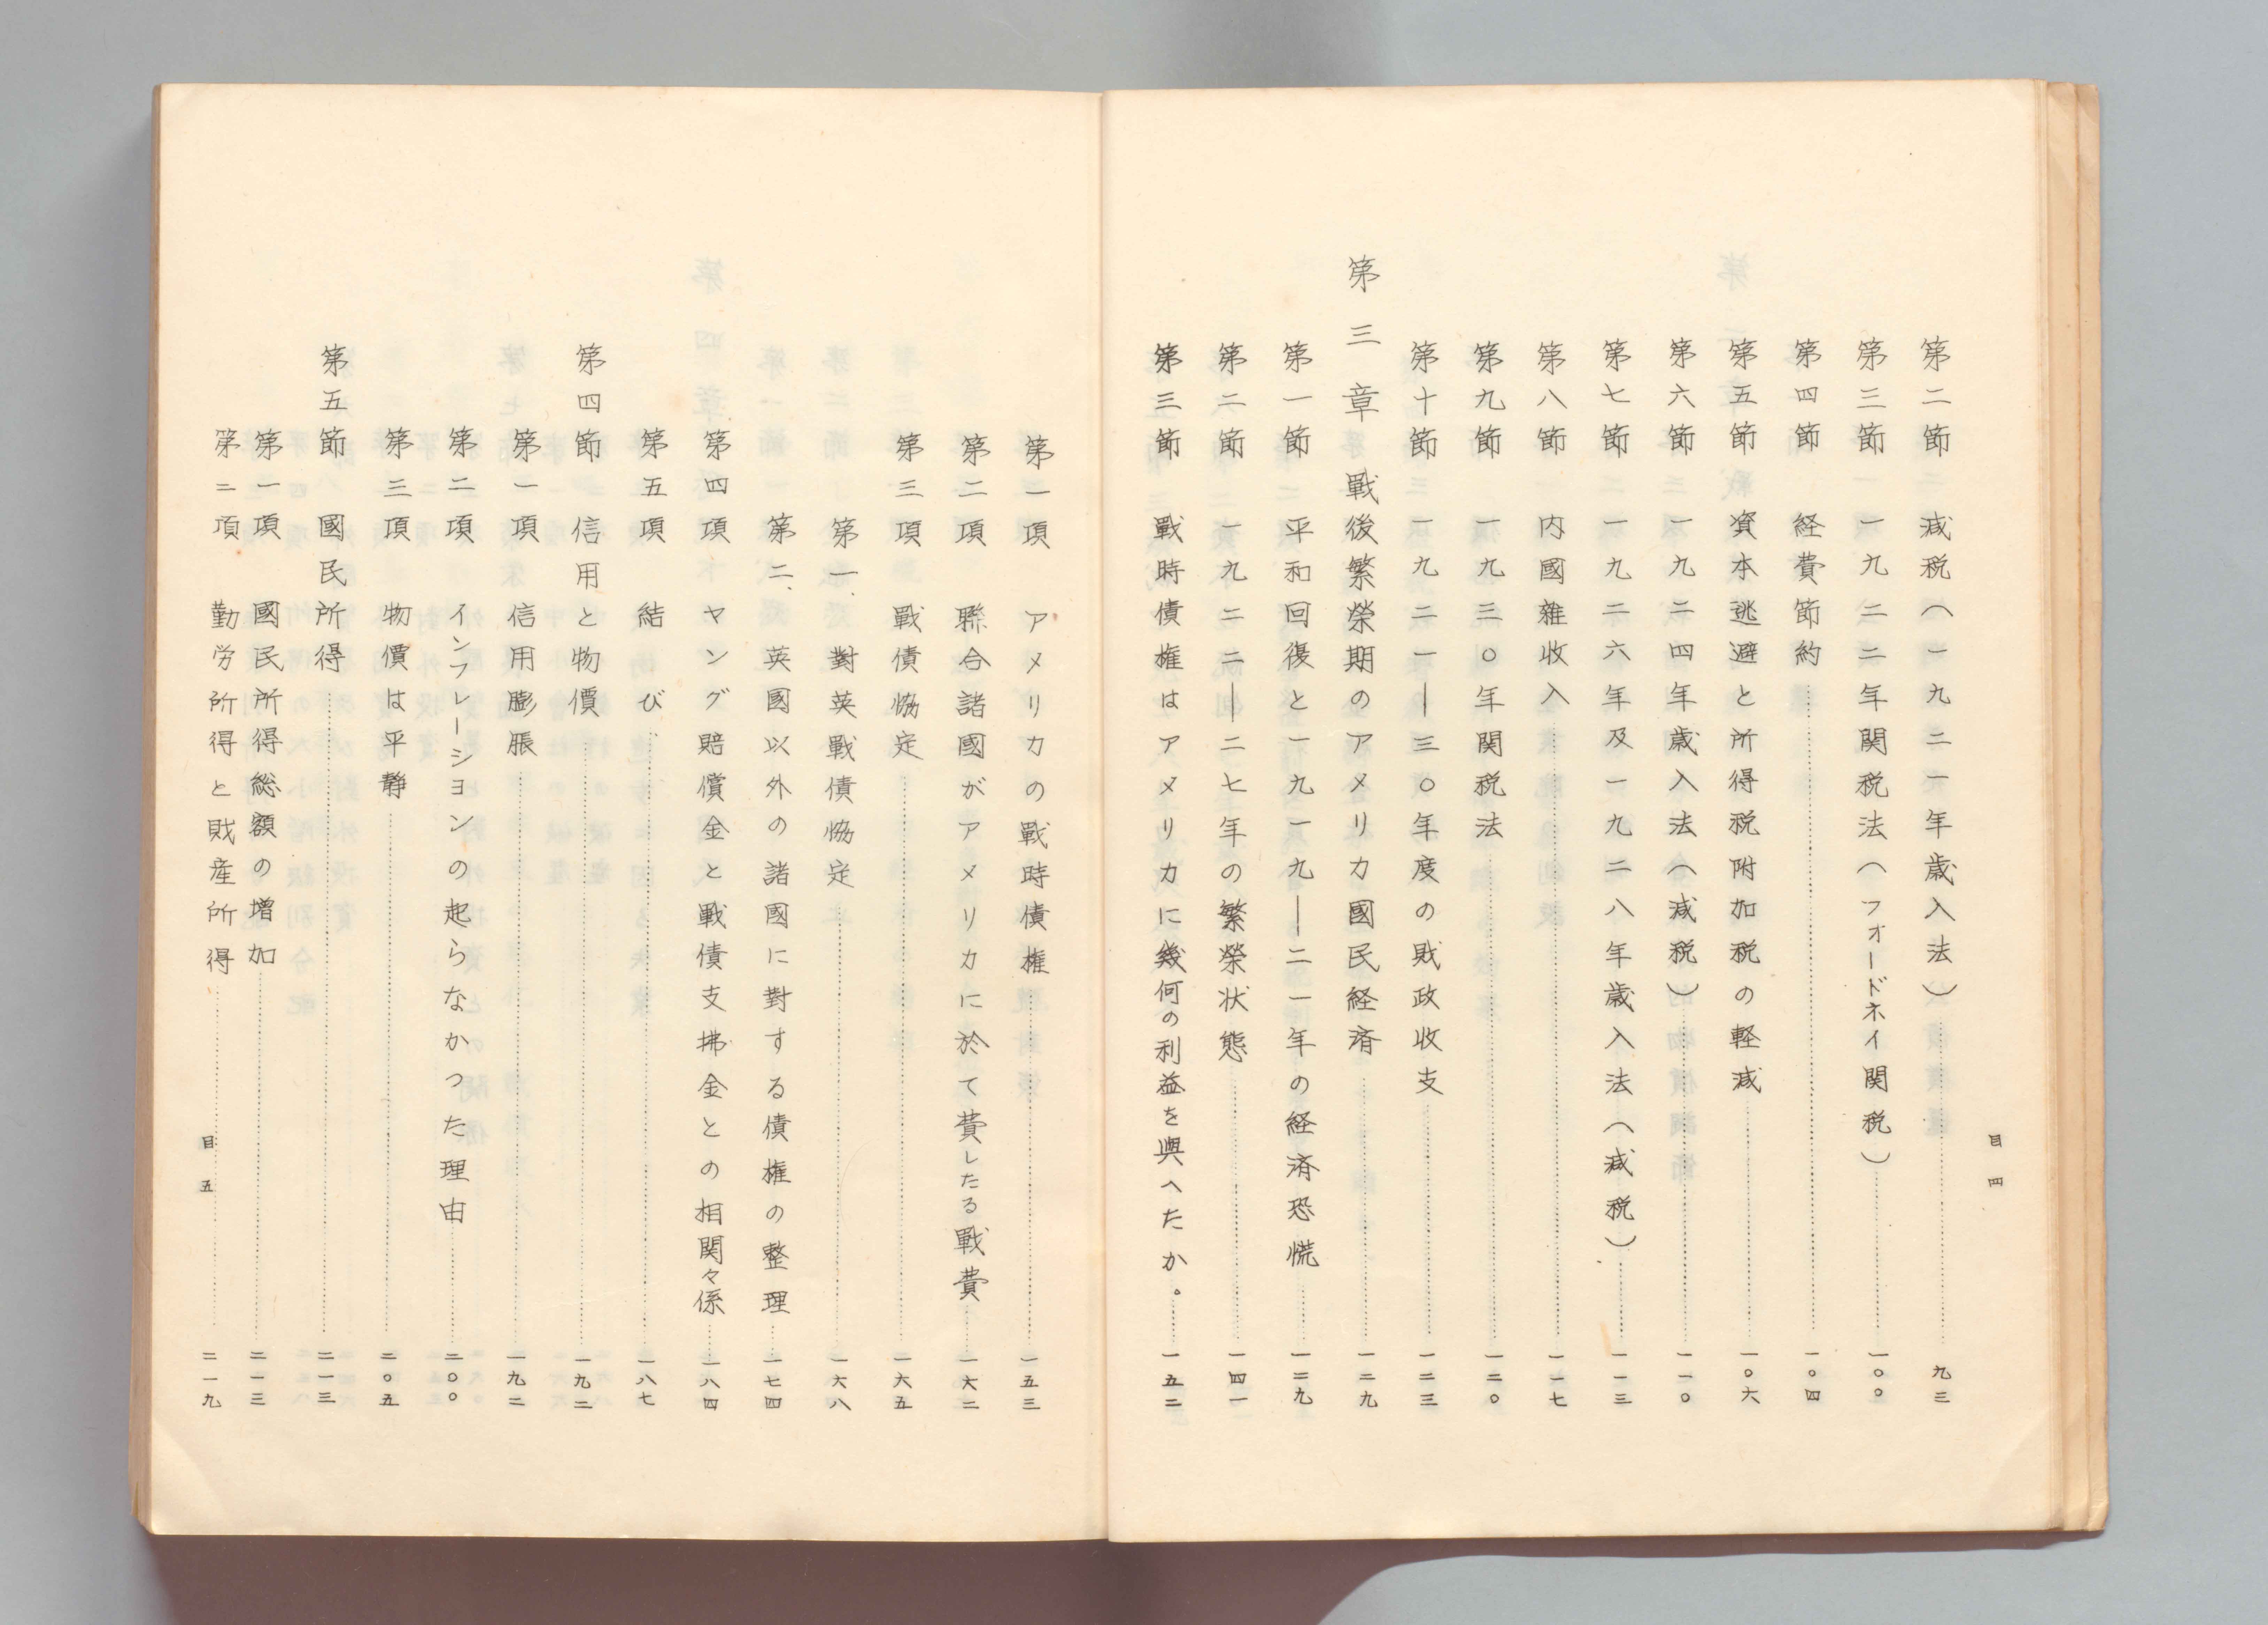 目四
第二節　減税（一九二一年歳入法）……九三
第三節　一九二二年関税法（フォードネイ関税）……一〇〇
第四節　経費節約……一〇四
第五節　資本逃避と所得税附加税の軽減……一〇六
第六節　一九二四年歳入法（減税）……一一〇
第七節　一九二六年及一九二八年歳入法（減税）……一一三
第八節　内國雜收入……一一七
第九節　一九三〇年関税法……一二〇
第十節　一九二一―三〇年度の財政收支……一二三
第三章　戰後繁榮期のアメリカ國民経済……一二九
第一節　平和回復と一九一九―二一年の経済恐慌……一二九
第二節　一九二二―二七年の繁榮状態……一四一
第三節　戰時債権はアメリカに幾何の利益を與へたか。……一五二
第一項　アメリカの戰時債権……一五三
第二項　聯合諸國がアメリカに於て費したる戰費……一六二
第三項　戰債協定……一六五
第一、對英戰債協定……一六八
第二、英國以外の諸國に對する債権の整理……一七四
第四項　ヤング賠償金と戰債支拂金との相関々係……一八四
第五項　結び……一八七
第四節　信用と物價……一九二
第一項　信用膨脹……一九二
第二項　インフレーションの起らなかつた理由……二〇〇
第三項　物價は平静……二〇五
第五節　國民所得……二一三
第一項　國民所得総額の増加……二一三
第二項　勤労所得と財産所得……二一九
目五